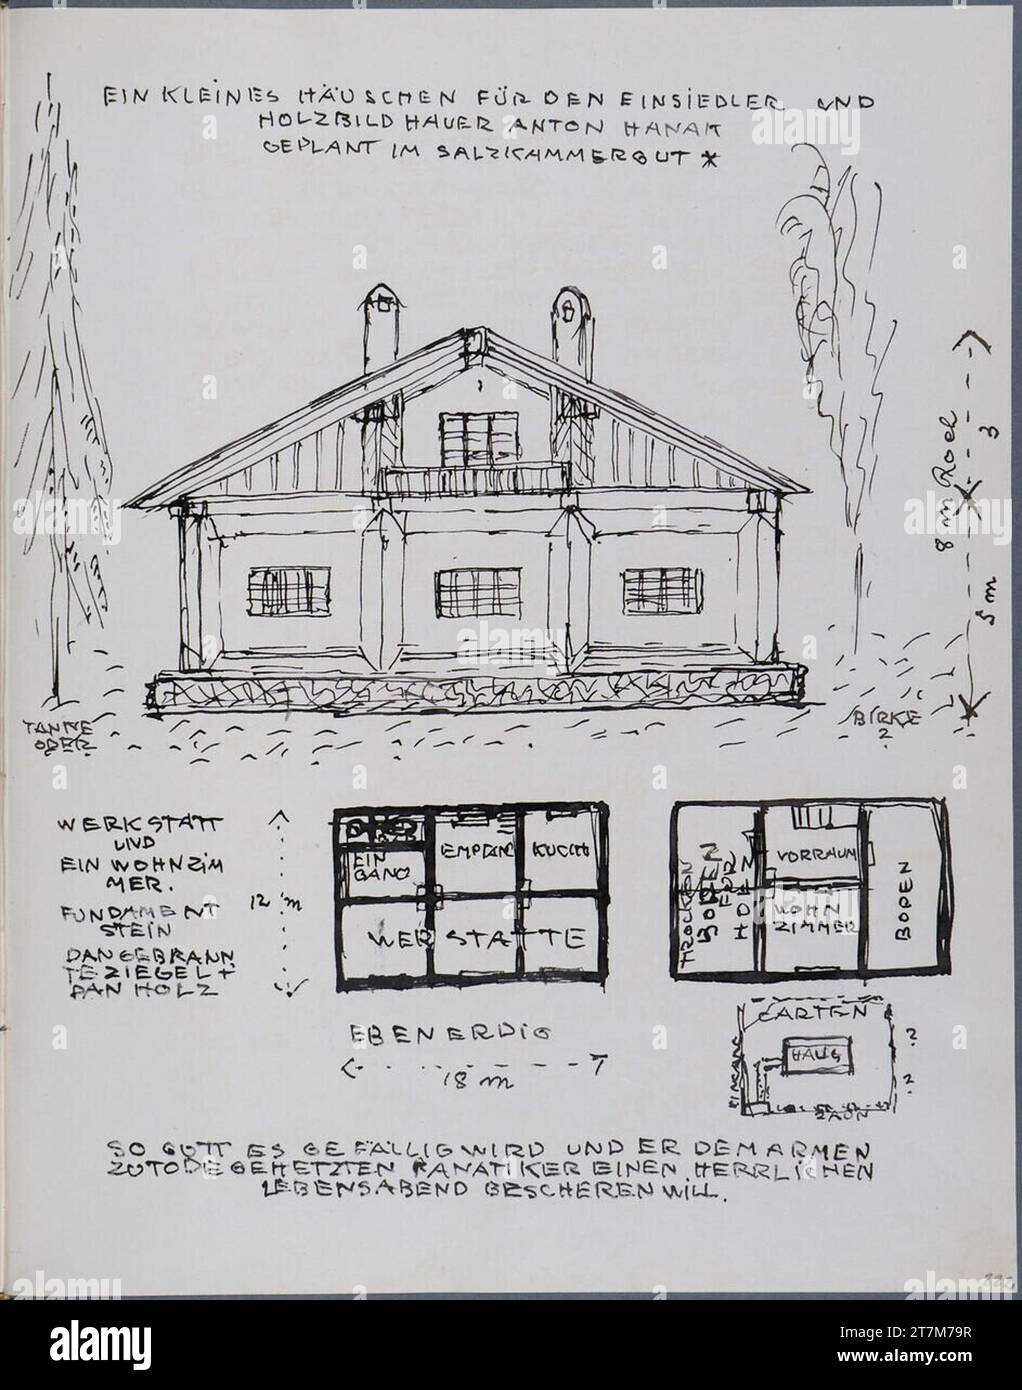 EIN KLEINES HÄUSCHEN FÜR DEN EINSIEDLER UND
HOLZBILDHAUER ANTON HANAK
GEPLANT IM SALZKAMMERGUT *
8 m
3
5 m
TANNE
ODER
BIRKE
?
WERKSTATT
UND
EIN WOHNZIM
MER.
FUNDAMENT
STEIN
DAN GEBRANN
TE ZIEGEL +
DAN HOLZ
12 m
EIN
GANG
EMPFANG
KÜCHE
WERSTATTE
EBENERDIG
18 m
TROCKEN
BODEN
FÜR
HOLZ
VORRAUM
WOHN
ZIMMER
BODEN
GARTEN
HAUS
EINGANG
ZAUN
?
?
SO GOTT ES GEFÄLLIG WIRD UND ER DEM ARMEN
ZUTODEGEHETZTEN FANATIKER EINEN HERRLICHEN
LEBENSABEND BESCHEREN WILL.
alamy
Image ID: 2T7M79R
www.alamy.com